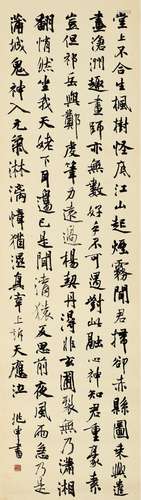 堂上不合生楓樹怪底江山起煙霧聞君掃却赤縣圖乘興遣
畫滄洲趣畫師亦無數好手不可遇對此融心神知君重毫素
豈但祁岳與鄭虔筆力遠過楊契丹得非玄圃裂無乃瀟湘
翻悄然坐我天姥下耳邊已是聞清猿反思前夜風雨急乃是
蒲城鬼神入元氣淋漓障猶濕真宰上訴天應泣 兆申書